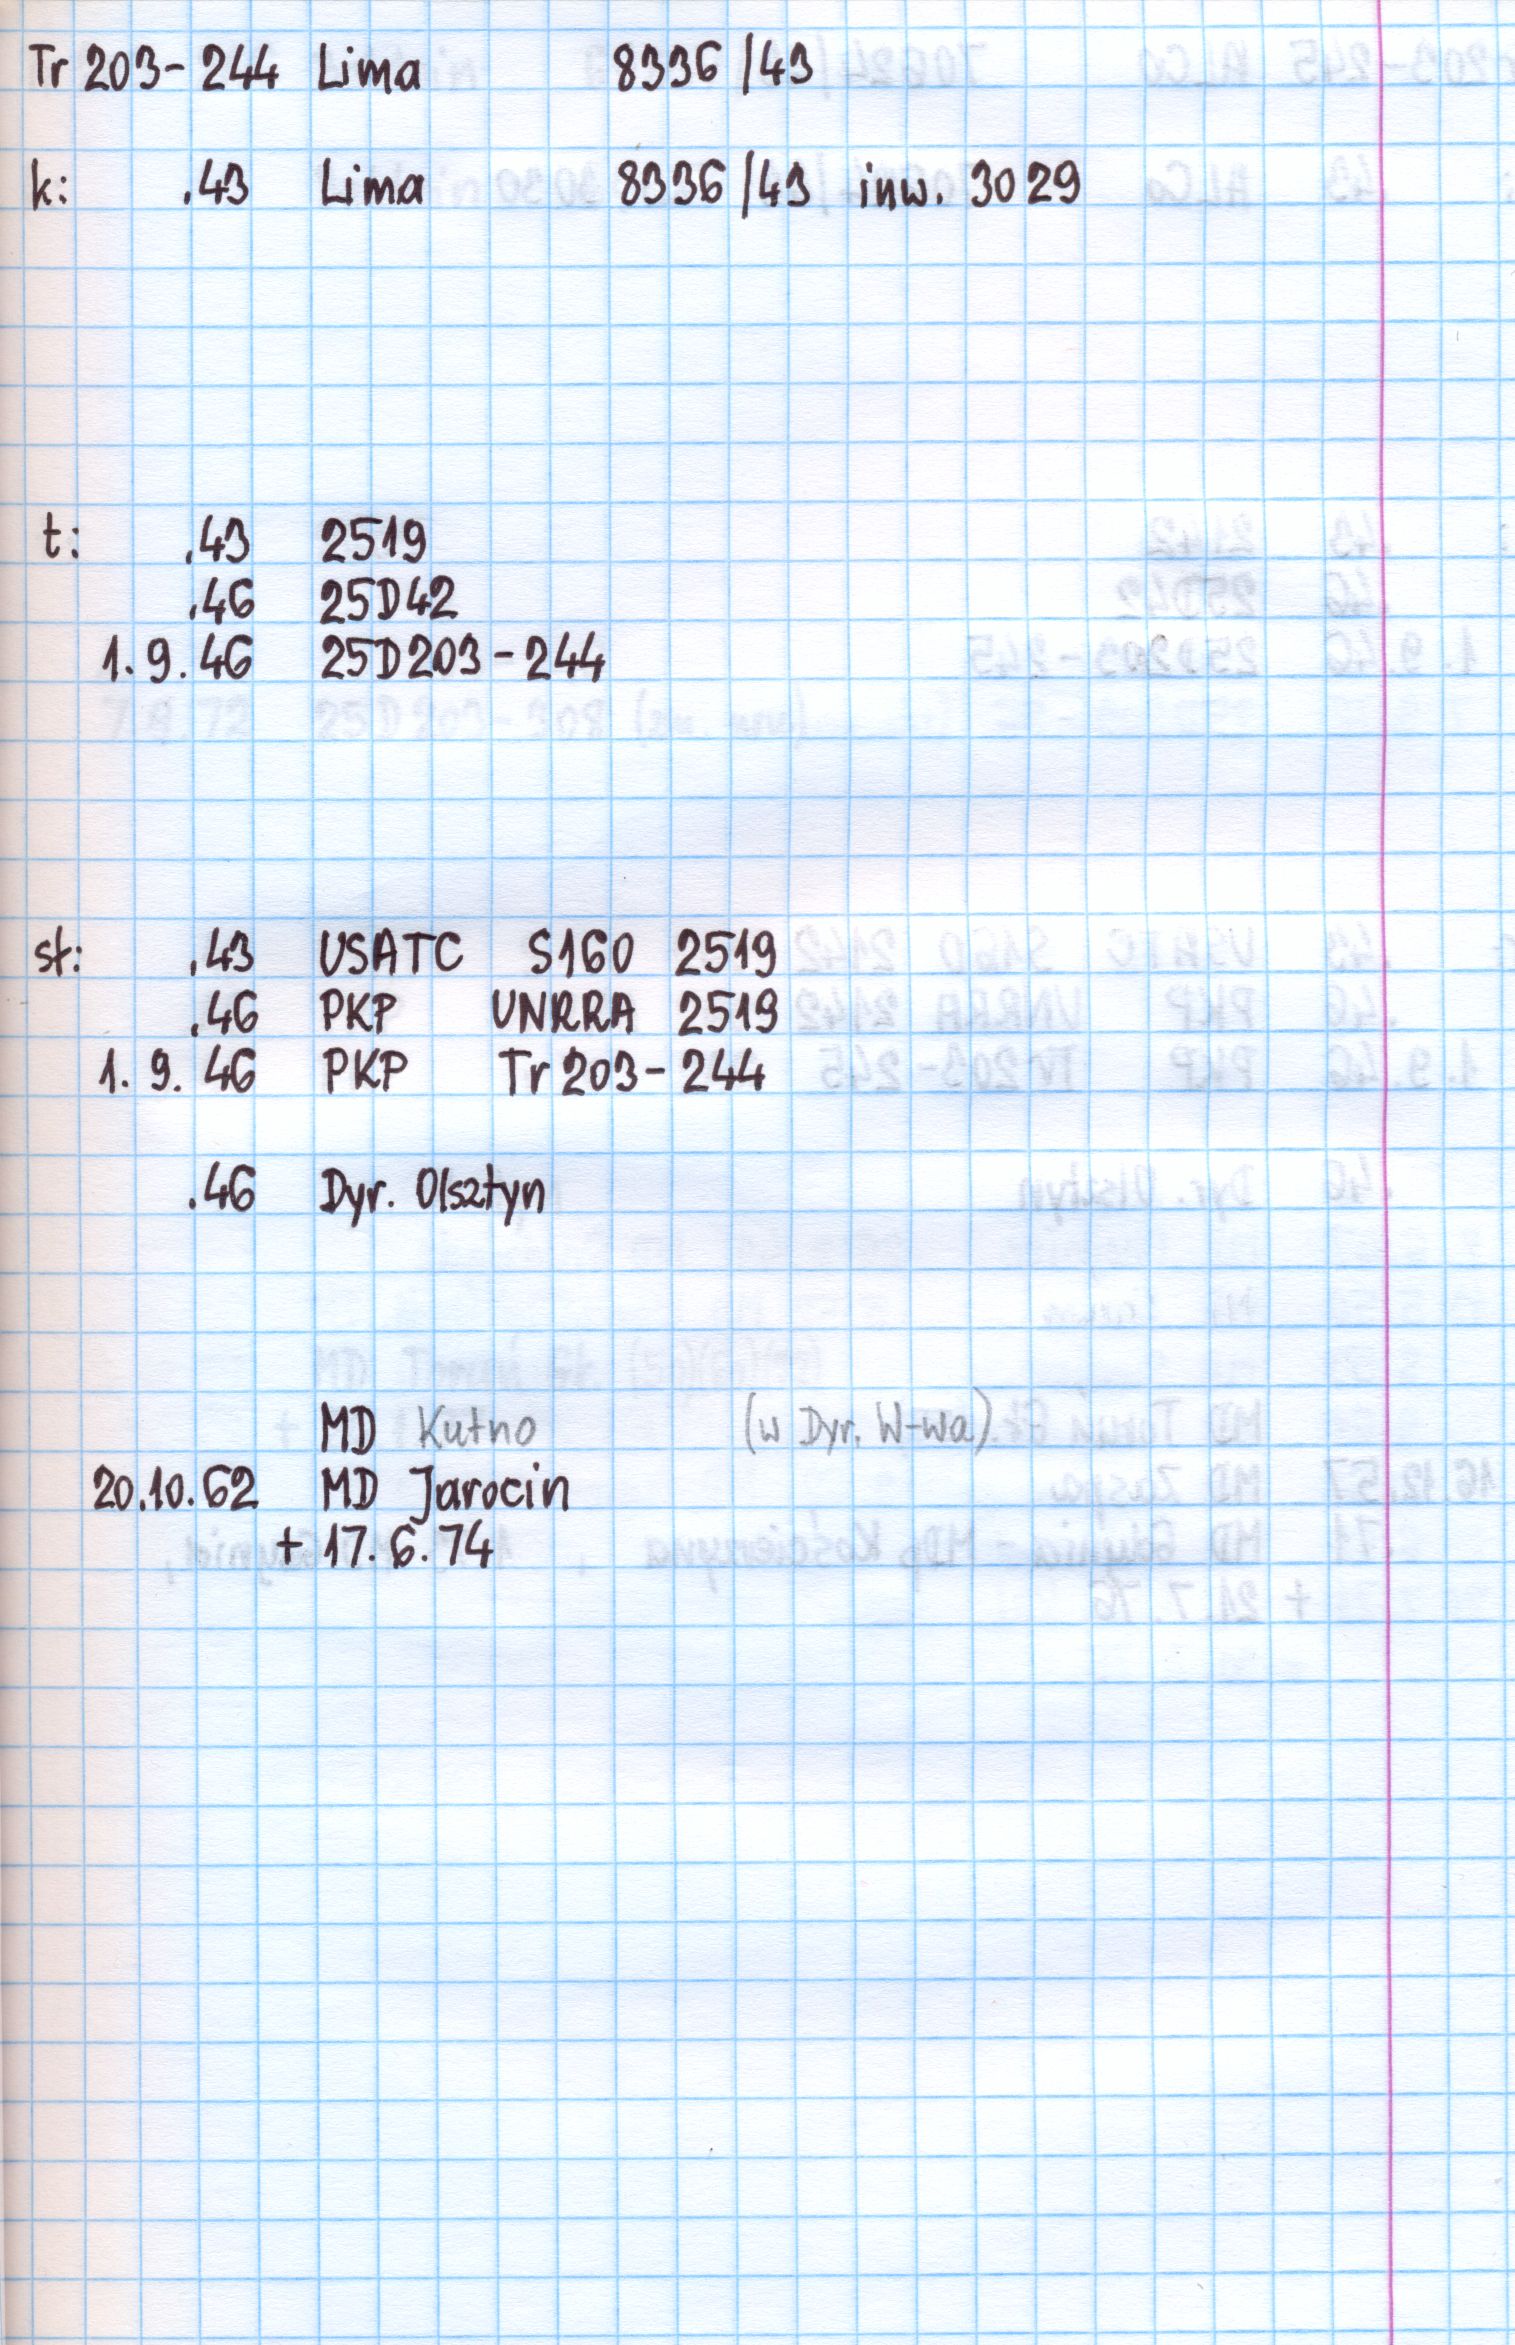 Tr 203-244 Lima 8336/43
k: .43 Lima 8336/43 inw. 3029
t: .43 2519
.46 25D42
1.9.46 25D203-244
st: .43 USATC S160 2519
.46 PKP UNRRA 2519
1.9.46 PKP Tr 203-244
.46 Dyr. Olsztyn
MD Kutno (w Dyr. W-wa)
20.10.62 MD Jarocin
+ 17.6.74